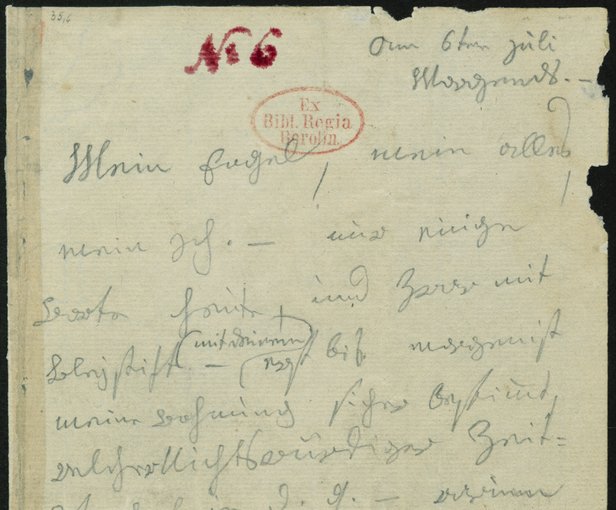 35,6
No 6
am 6ten Juli
Morgends. —
Ex
Bibl. Regia
Berolin.
Mein Engel, mein alles,
mein Ich. — nur einige
worte heute, und zwar mit
Bleystift — (mit deinem)
erst bis morgen ist
meine wohnung sicher bestimt,
welcher Nichtswürdiger Zeit=
d. g. — warum